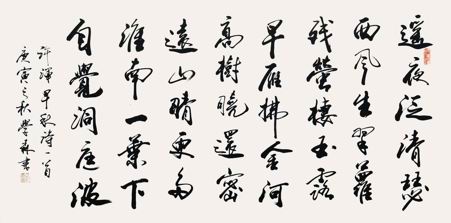 遙夜泛清瑟
西風生翠蘿
殘螢棲玉露
早雁拂金河
高樹曉還密
遠山晴更多
淮南一葉下
自覺洞庭波
許渾早秋詩一首
庚寅之秋學森書